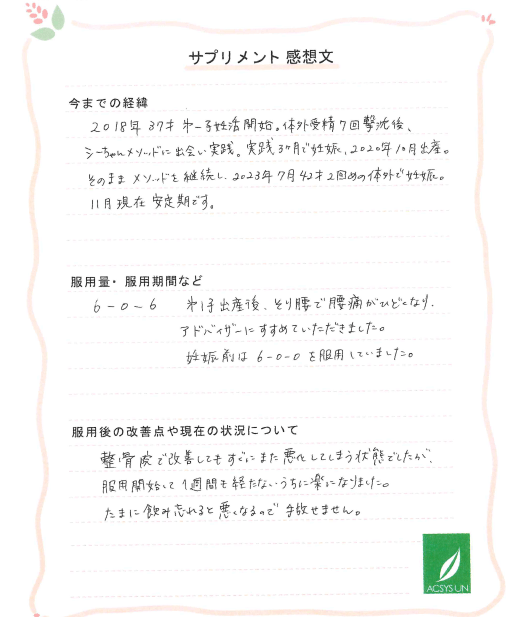 サプリメント 感想文
今までの経緯
2018年 37才 第一子妊活開始。体外受精7回撃沈後、
シーちゃんメソッドに出会い実践。実践3ヶ月で妊娠、2020年10月出産。
そのまま メソッドを継続し、2023年7月42才2回めの体外で妊娠。
11月現在 安定期です。
服用量・服用期間など
6-0-6 第1子出産後、そり腰で腰痛がひどくなり、
アドバイザーにすすめていただきました。
妊娠前は 6-0-0 を服用していました。
服用後の改善点や現在の状況について
整骨院で改善してもすぐにまた悪化してしまう状態でしたが、
服用開始して1週間も経たないうちに楽になりました。
たまに飲み忘れると悪くなるので手放せません。
ACSYS UN